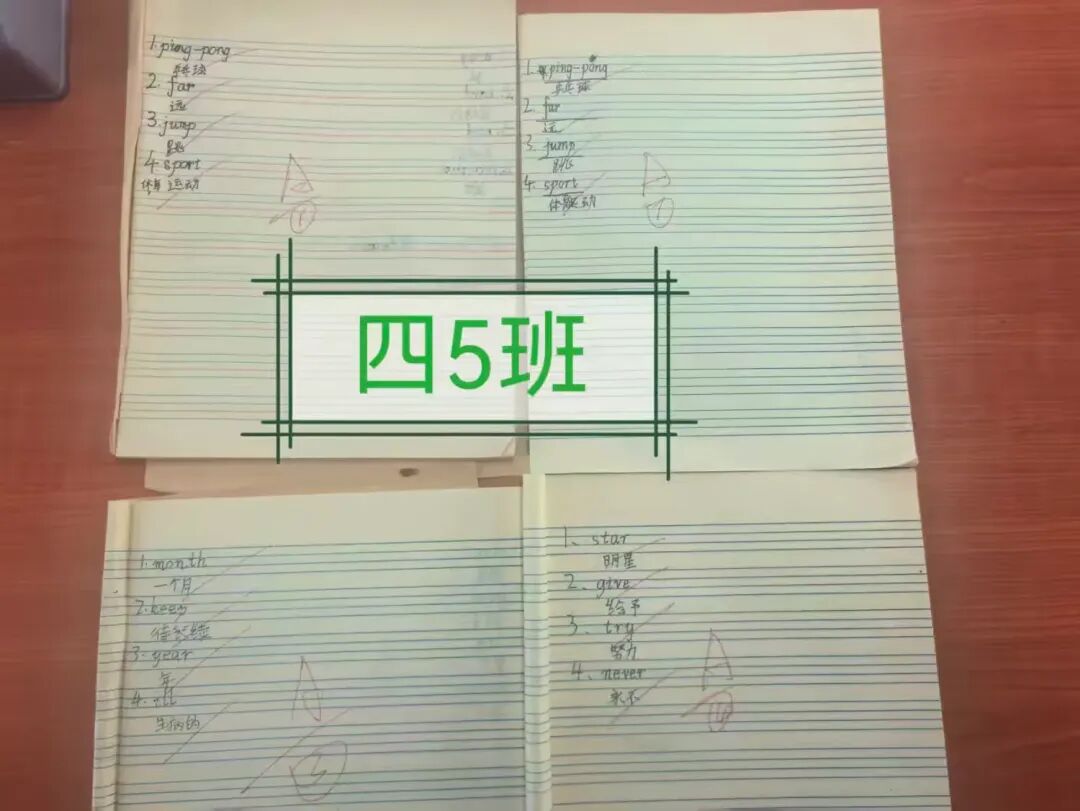 1. ping-pong
乒乓球
2. far
远
3. jump
跳
4 sport
体育运动
A
①
1. ping-pong
乒乓球
2. far
远
3. jump
跳
4. sport
体育运动
A
①
四5班
1. month
一个月
2. keep
3. year
年
4. ill
生病的
A
1、star
明星
2、give
给予
3、try
努力
4、never
从不
A